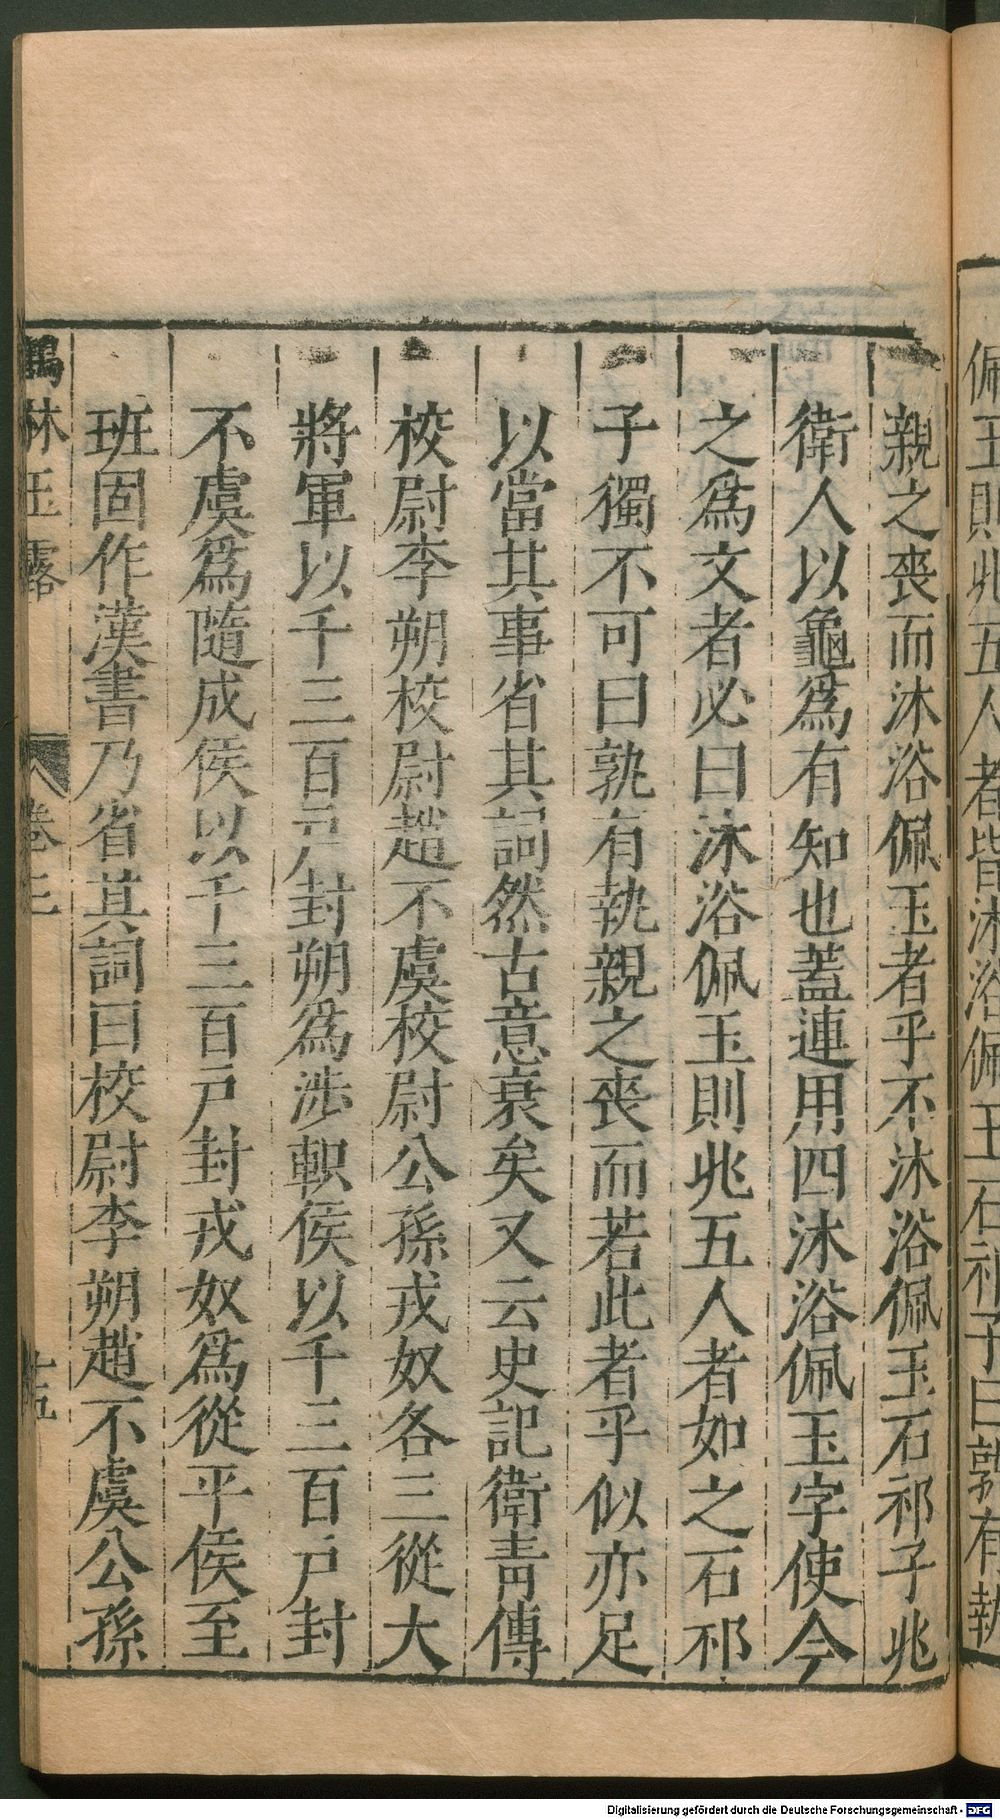 佩玉則兆五人者皆沐浴佩玉石祁子曰孰有執
親之喪而沐浴佩玉者乎不沐浴佩玉石祁子兆
衛人以龜爲有知也蓋連用四沐浴佩玉字使今
之爲文者必曰沐浴佩玉則兆五人者如之石祁
子獨不可曰孰有執親之喪而若此者乎似亦足
以當其事省其詞然古意衰矣又云史記衛青傳
校尉李朔校尉趙不虞校尉公孫戎奴各三從大
將軍以千三百戶封朔爲涉軹侯以千三百戶封
不虞爲隨成侯以千三百戶封戎奴爲從平侯至
班固作漢書乃省其詞曰校尉李朔趙不虞公孫
鶴林玉露 卷三 十五
Digitalisierung gefördert durch die Deutsche Forschungsgemeinschaft - DFG